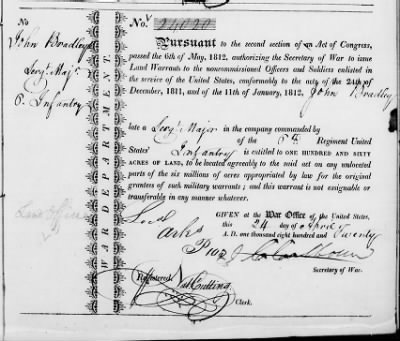 No.
No. 24020
John Bradley
Serg.t Maj.r
6. Infantry
WAR DEPARTMENT.
Pursuant to the second section of an Act of Congress,
passed the 6th of May, 1812, authorizing the Secretary of War to issue
Land Warrants to the noncommissioned Officers and Soldiers enlisted in
the service of the United States, conformably to the acts of the 24th of
December, 1811, and of the 11th of January, 1812, John Bradley
late a Serg.t Major in the company commanded by
of the 6th Regiment United
States' Infantry is entitled to ONE HUNDRED AND SIXTY
ACRES OF LAND, to be located agreeably to the said act on any unlocated
parts of the six millions of acres appropriated by law for the original
grantees of such military warrants; and this warrant is not assignable or
transferable in any manner whatever.
GIVEN at the War Office of the United States,
this 24 day of April
A. D. one thousand eight hundred and Twenty
J C Calhoun
Secretary of War.
Registered, Nat Cutting
Clerk.